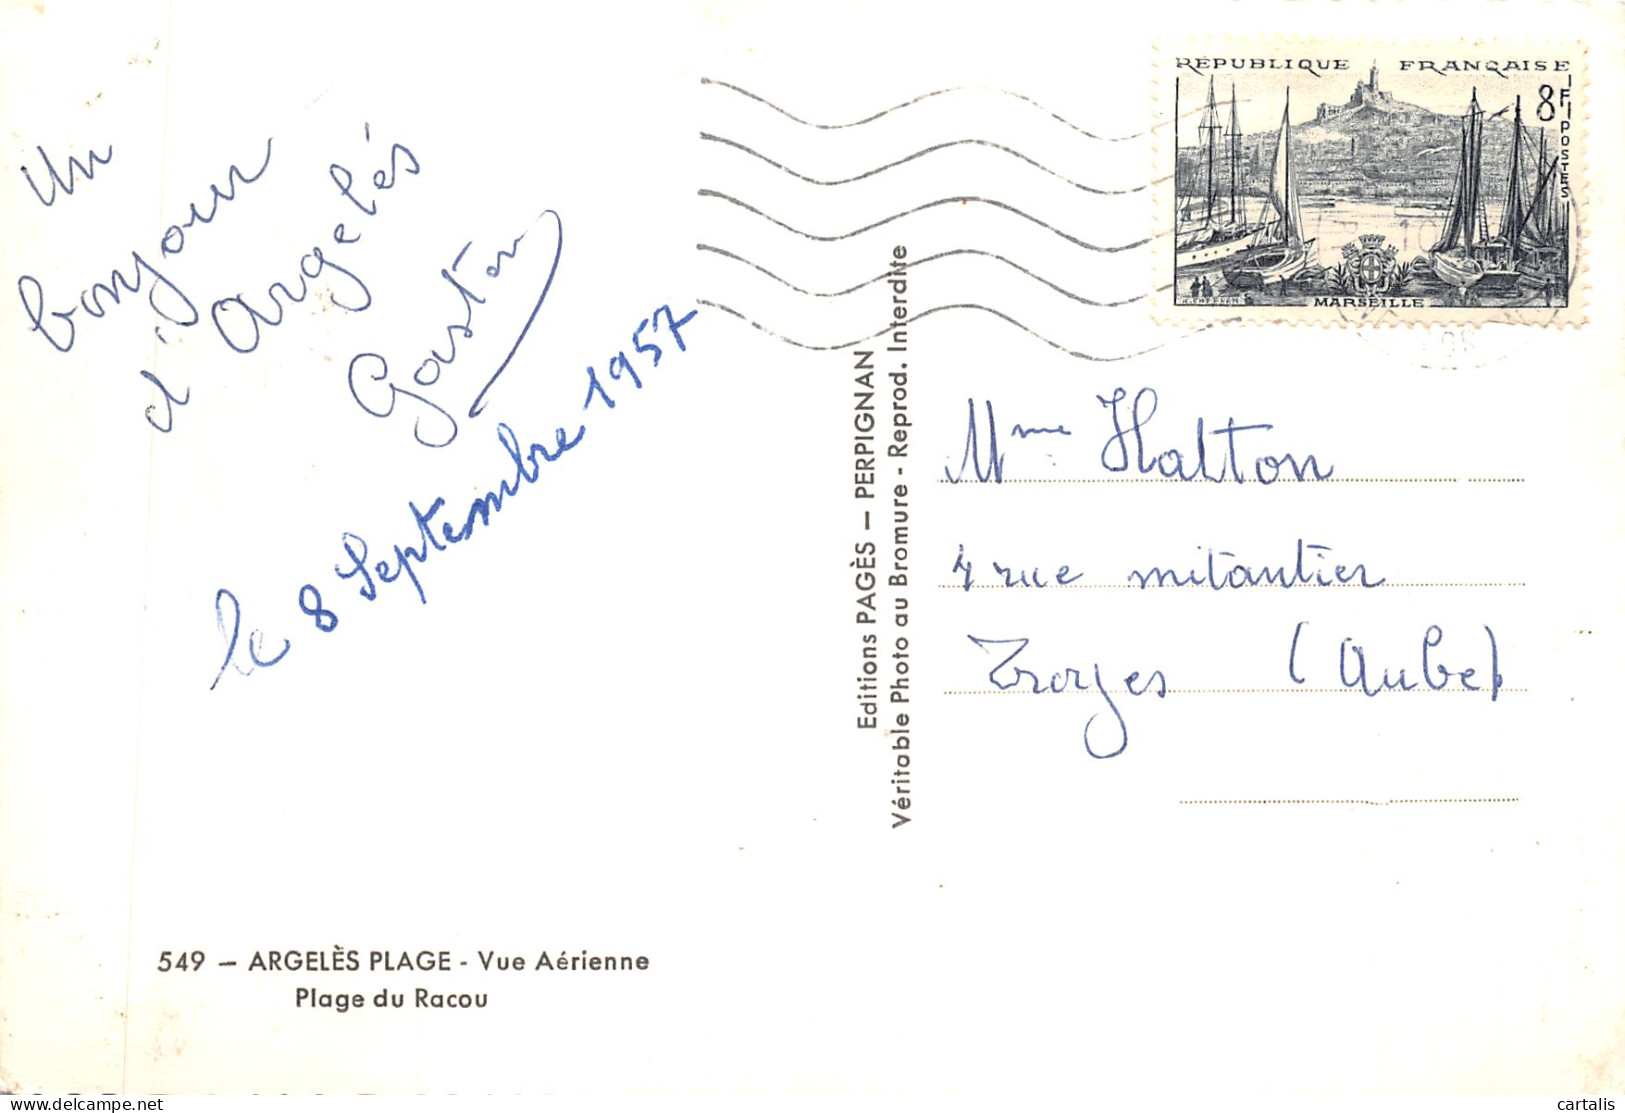 Un
bonjour
d'Argelés
Gaston
le 8 Septembre 1957
549 — ARGELÈS PLAGE - Vue Aérienne
Plage du Racou
Editions PAGÈS — PERPIGNAN
Véritable Photo au Bromure - Reprod. Interdite
RÉPUBLIQUE FRANÇAISE
8F
POSTES
MARSEILLE
Mme Halton
4 rue mitantier
Troyes (Aube)
cartalis